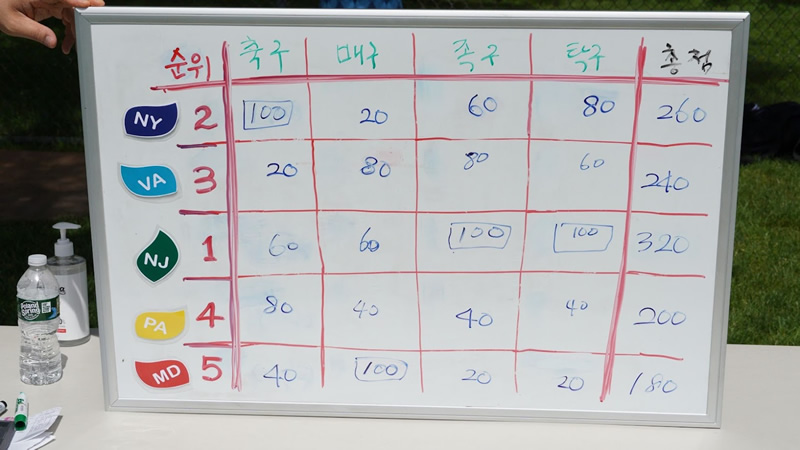 순위 축구 배구 족구 탁구 총점
NY 2 100 20 60 80 260
VA 3 20 80 80 60 240
NJ 1 60 60 100 100 320
PA 4 80 40 40 40 200
MD 5 40 100 20 20 180
Poland Spring